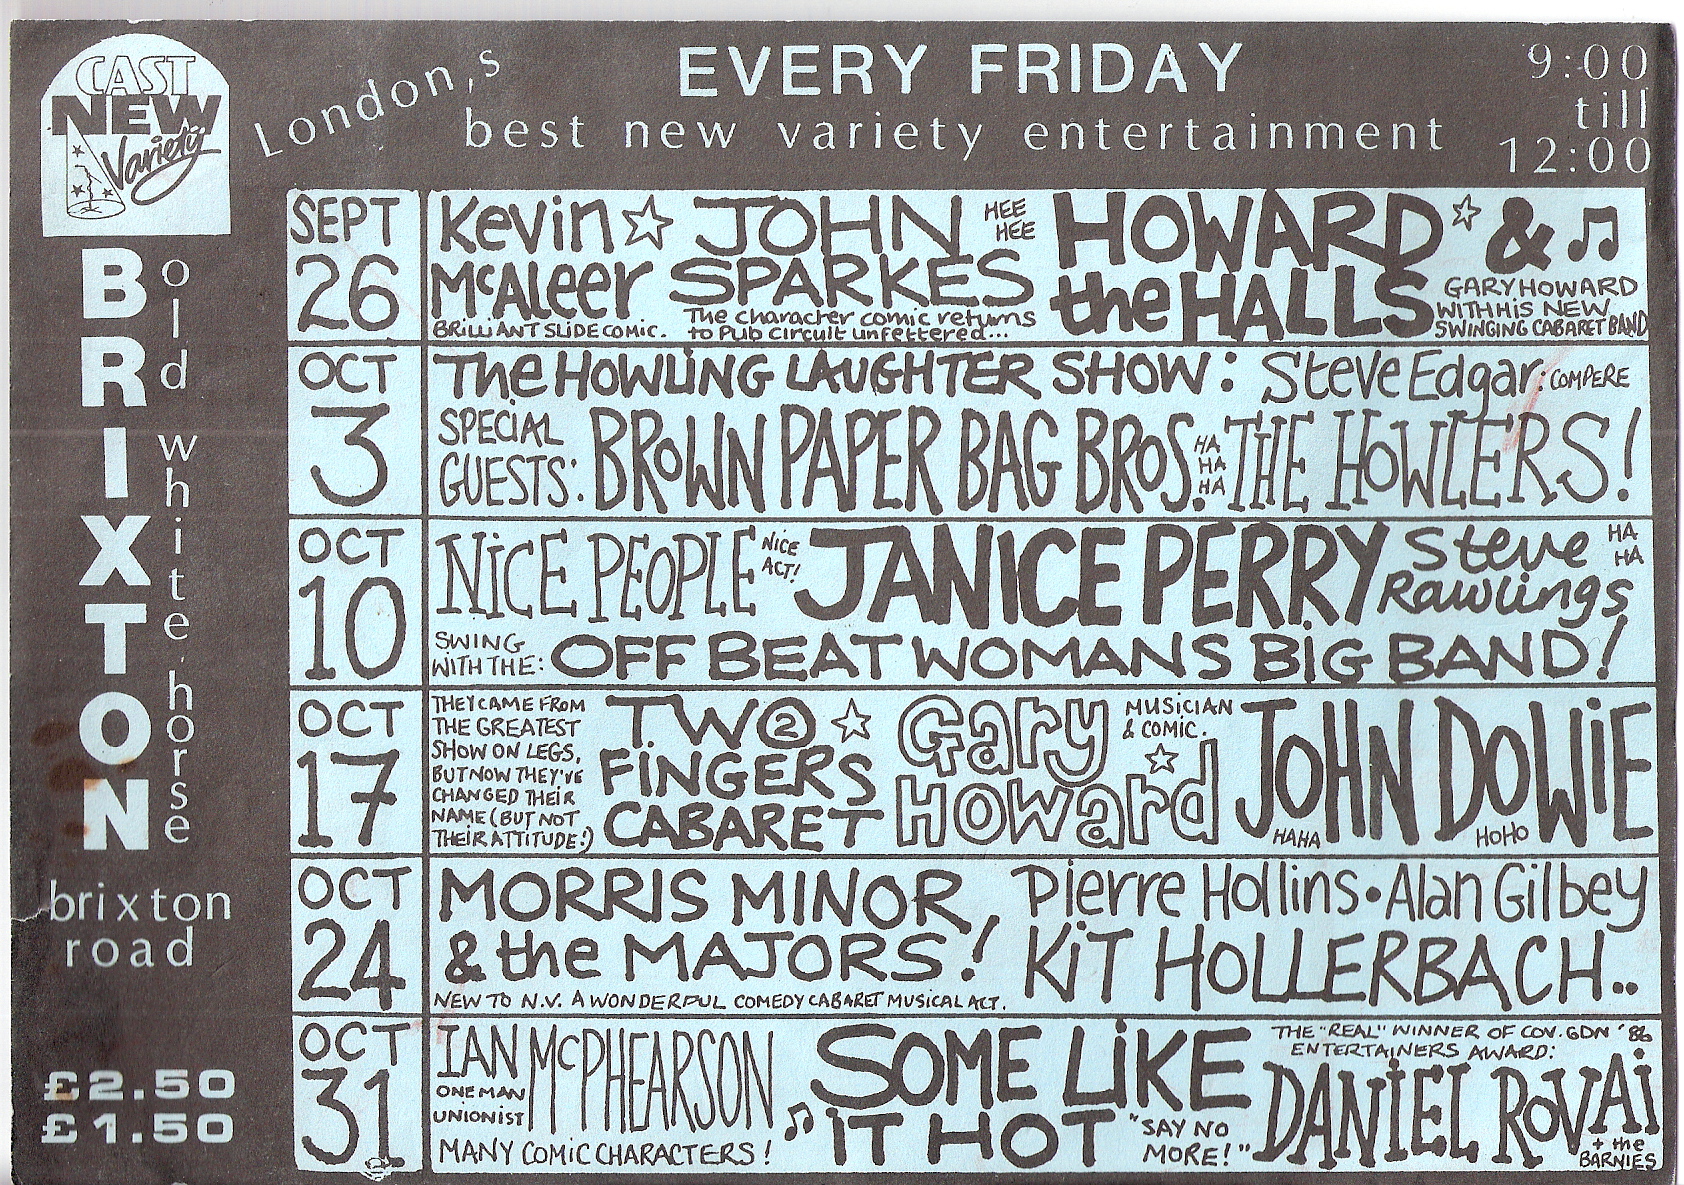 CAST
NEW
Variety
London,s
EVERY FRIDAY
best new variety entertainment
9:00
till
12:00
BRIXTON
old white horse
brixton
road
£2.50
£1.50
SEPT
26
Kevin
McAleer
BRILLIANT SLIDE COMIC.
JOHN
SPARKES
The character comic returns
to Pub Circuit unfettered...
HEE
HEE
HOWARD &
the HALLS
GARY HOWARD
WITH HIS NEW
SWINGING CABARET BAND
OCT
3
The HOWLING LAUGHTER SHOW: Steve Edgar: COMPERE
SPECIAL
GUESTS:
BROWN PAPER BAG BROS.
HA
HA
HA
THE HOWLERS!
OCT
10
NICE PEOPLE
NICE
ACT!
JANICE PERRY
Steve
Rawlings
HA
HA
SWING
WITH THE:
OFF BEAT WOMANS BIG BAND!
OCT
17
THEY CAME FROM
THE GREATEST
SHOW ON LEGS,
BUT NOW THEY'VE
CHANGED THEIR
NAME (BUT NOT
THEIR ATTITUDE!)
TWO 2
FINGERS
CABARET
Gary
Howard
MUSICIAN
& COMIC.
JOHN DOWIE
HAHA
HOHO
OCT
24
MORRIS MINOR
& the MAJORS!
NEW TO N.V. A WONDERFUL COMEDY CABARET MUSICAL ACT.
Pierre Hollins • Alan Gilbey
KIT HOLLERBACH..
OCT
31
IAN McPHEARSON
ONE MAN
UNIONIST
MANY COMIC CHARACTERS!
SOME LIKE
IT HOT
"SAY NO
MORE!"
THE "REAL" WINNER OF COV. GDN '86
ENTERTAINERS AWARD:
DANIEL ROVAI
+ the
BARNIES